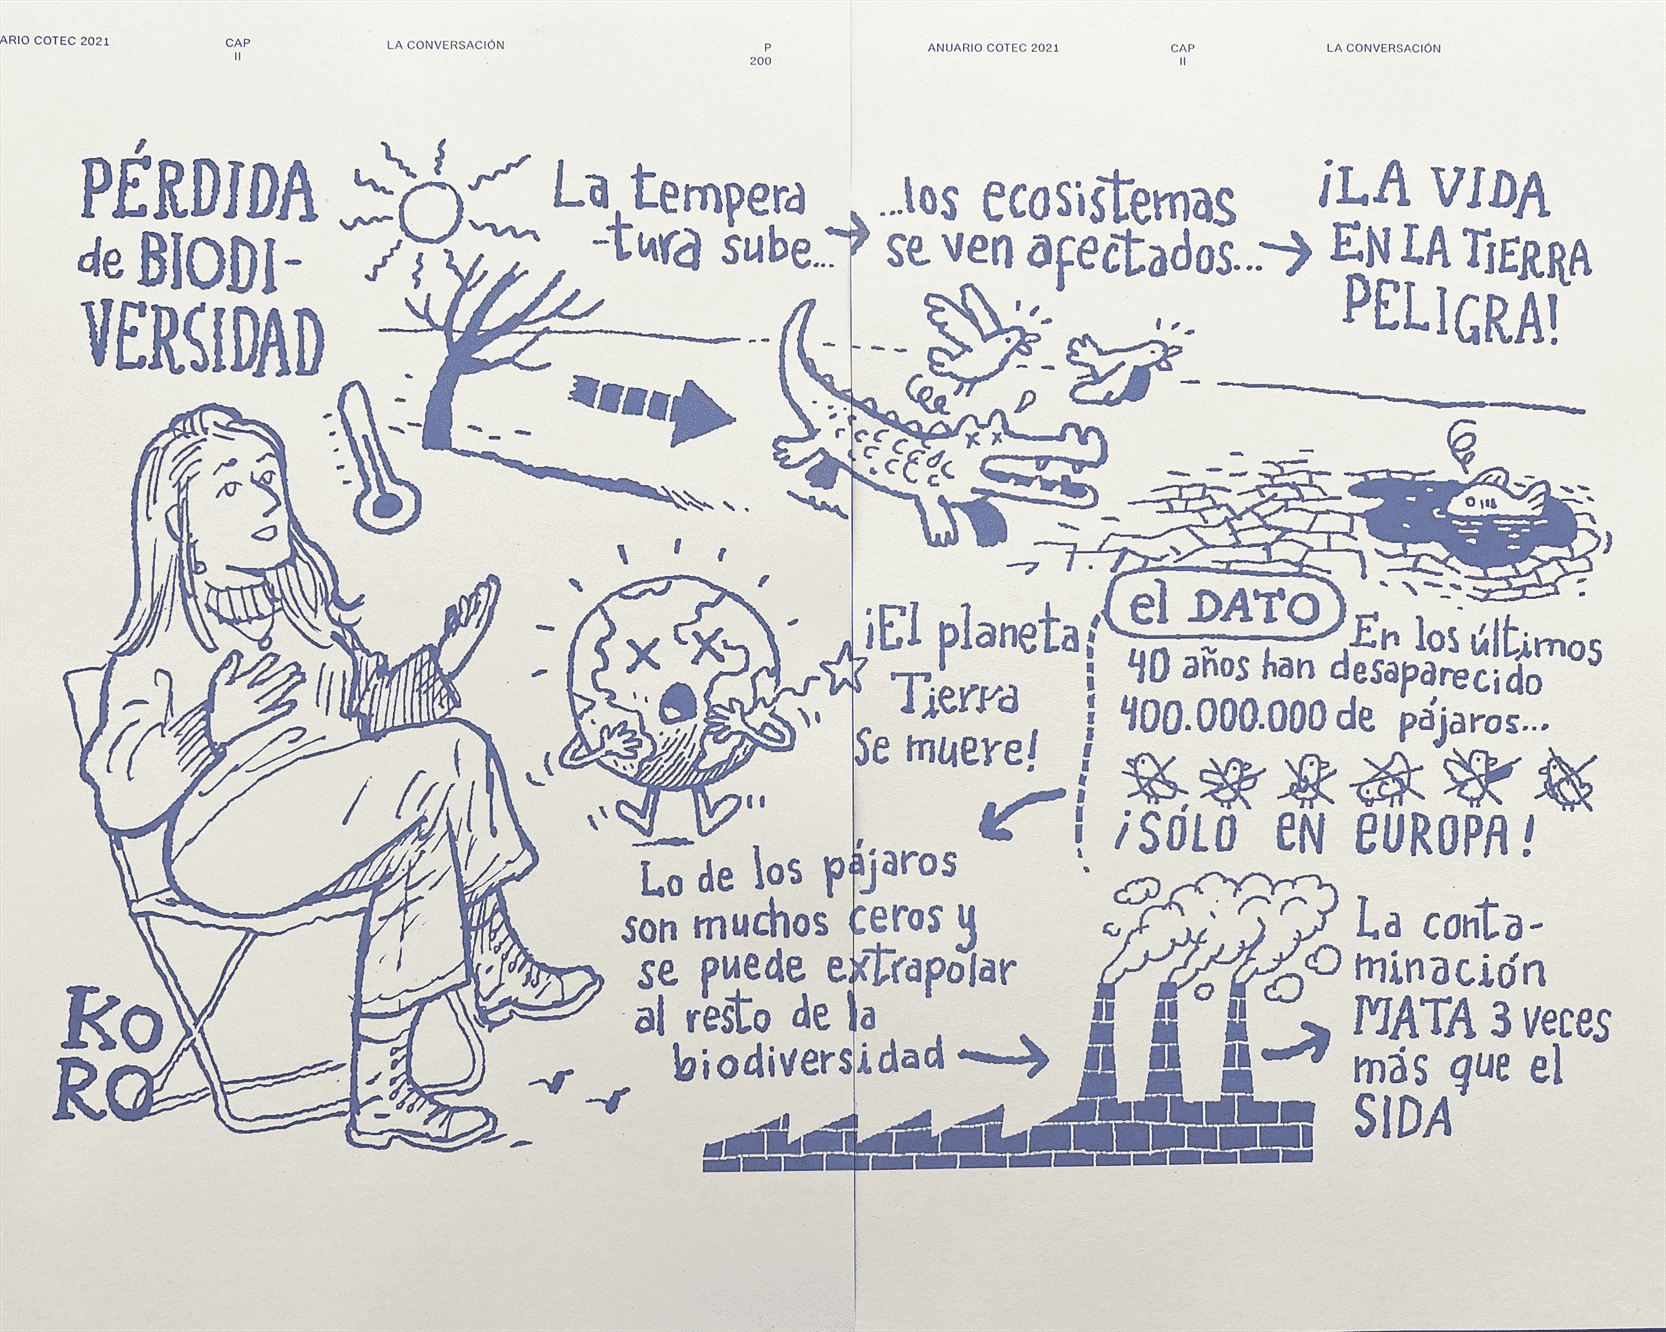 ARIO COTEC 2021
CAP
II
LA CONVERSACIÓN
P
200
ANUARIO COTEC 2021
CAP
II
LA CONVERSACIÓN
PÉRDIDA
de BIODI-
VERSIDAD
La tempera
-tura sube...
...los ecosistemas
se ven afectados...
¡LA VIDA
EN LA TIERRA
PELIGRA!
¡El planeta
Tierra
se muere!
el DATO
En los últimos
40 años han desaparecido
400.000.000 de pájaros...
¡SÓLO EN EUROPA!
Lo de los pájaros
son muchos ceros y
se puede extrapolar
al resto de la
biodiversidad
La conta-
minación
MATA 3 veces
más que el
SIDA
KO
RO